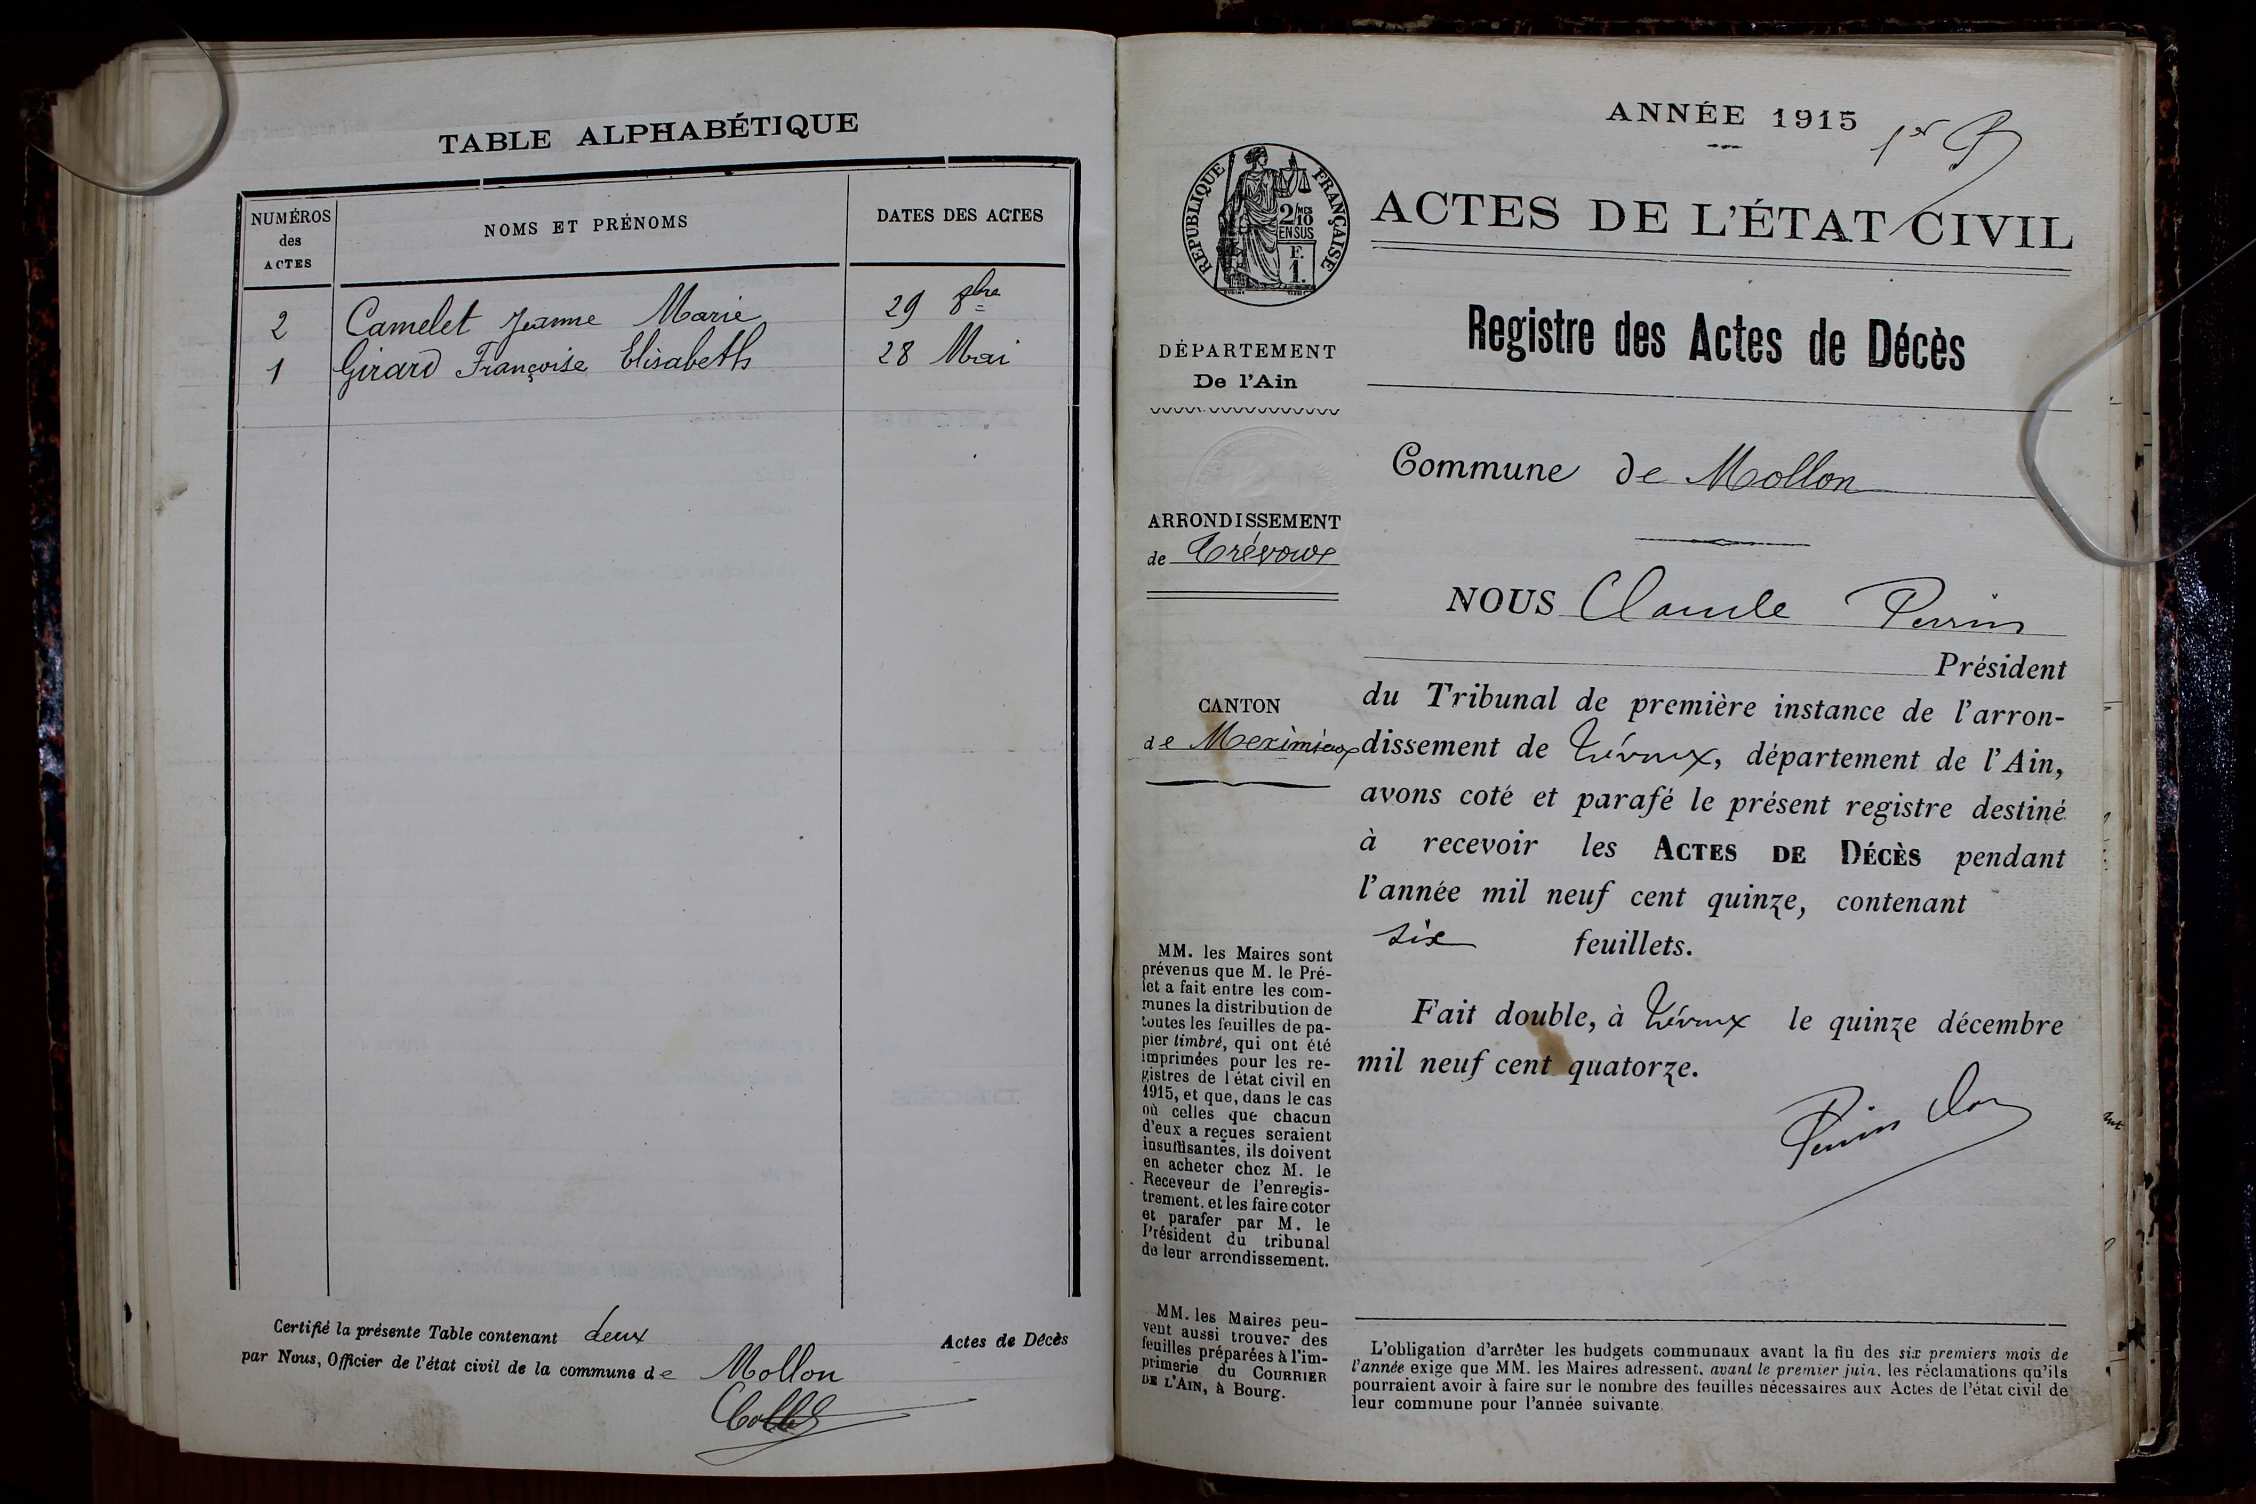 TABLE ALPHABÉTIQUE
NUMÉROS
des
ACTES
NOMS ET PRÉNOMS
DATES DES ACTES
2 Camelet Jeanne Marie 29 8bre
1 Girard Françoise Elisabeth 28 Mai
Certifié la présente Table contenant deux Actes de Décès
par Nous, Officier de l'état civil de la commune de Mollon
ANNÉE 1915
1er
RÉPUBLIQUE FRANÇAISE
2/10 MES
EN SUS
F.
1.
ACTES DE L'ÉTAT CIVIL
Registre des Actes de Décès
DÉPARTEMENT
De l'Ain
Commune de Mollon
ARRONDISSEMENT
de Trévoux
NOUS Claude Perrin
Président
CANTON
de Meximieux
du Tribunal de première instance de l'arron-
dissement de Trévoux, département de l'Ain,
avons coté et parafé le présent registre destiné
à recevoir les ACTES DE DÉCÈS pendant
l'année mil neuf cent quinze, contenant
six feuillets.
Fait double, à Trévoux le quinze décembre
mil neuf cent quatorze.
Perrin
MM. les Maires sont
prévenus que M. le Pré-
fet a fait entre les com-
munes la distribution de
toutes les feuilles de pa-
pier timbré, qui ont été
imprimées pour les re-
gistres de l'état civil en
1915, et que, dans le cas
où celles que chacun
d'eux a reçues seraient
insuffisantes, ils doivent
en acheter chez M. le
Receveur de l'enregis-
trement. et les faire coter
et parafer par M. le
Président du tribunal
de leur arrondissement.
MM. les Maires peu-
vent aussi trouver des
feuilles préparées à l'im-
primerie du COURRIER
DE L'AIN, à Bourg.
L'obligation d'arrêter les budgets communaux avant la fin des six premiers mois de
l'année exige que MM. les Maires adressent, avant le premier juin, les réclamations qu'ils
pourraient avoir à faire sur le nombre des feuilles nécessaires aux Actes de l'état civil de
leur commune pour l'année suivante.